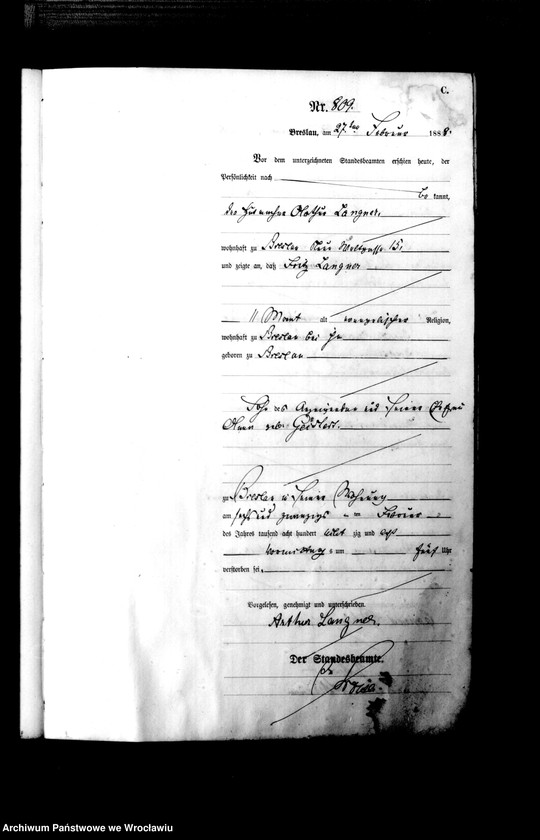 C.
Nr. 809.
Breslau, am 27. ten Februar 1888.
Vor dem unterzeichneten Standesbeamten erschien heute, der
Persönlichkeit nach
be kannt,
der Arthur Langner,
wohnhaft zu Breslau Neue Weltgasse 15,
und zeigte an, daß Fritz Langner
11 Monat alt evangelischer Religion,
wohnhaft zu Breslau bei ihm
geboren zu Breslau
Sohn des Anzeigenden und seiner Ehefrau
geb.
zu Breslau in seiner Wohnung
am sechs und zwanzigsten Februar
des Jahres tausend acht hundert acht zig und acht
Vormittags um fünf Uhr
verstorben sei.
Vorgelesen, genehmigt und unterschrieben.
Arthur Langner.
Der Standesbeamte.
Archiwum Państwowe we Wrocławiu